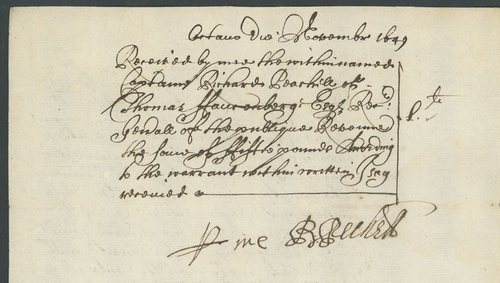 Octavo die Novembr 1649
Received by mee the within named
Captaine Richard Peachill of
Thomas Fauconberge Esqr Recr
Genall of the publique Revenue
the some of fiftie pounds according
to the warrant within written I say
received
l li
p me R Pechell